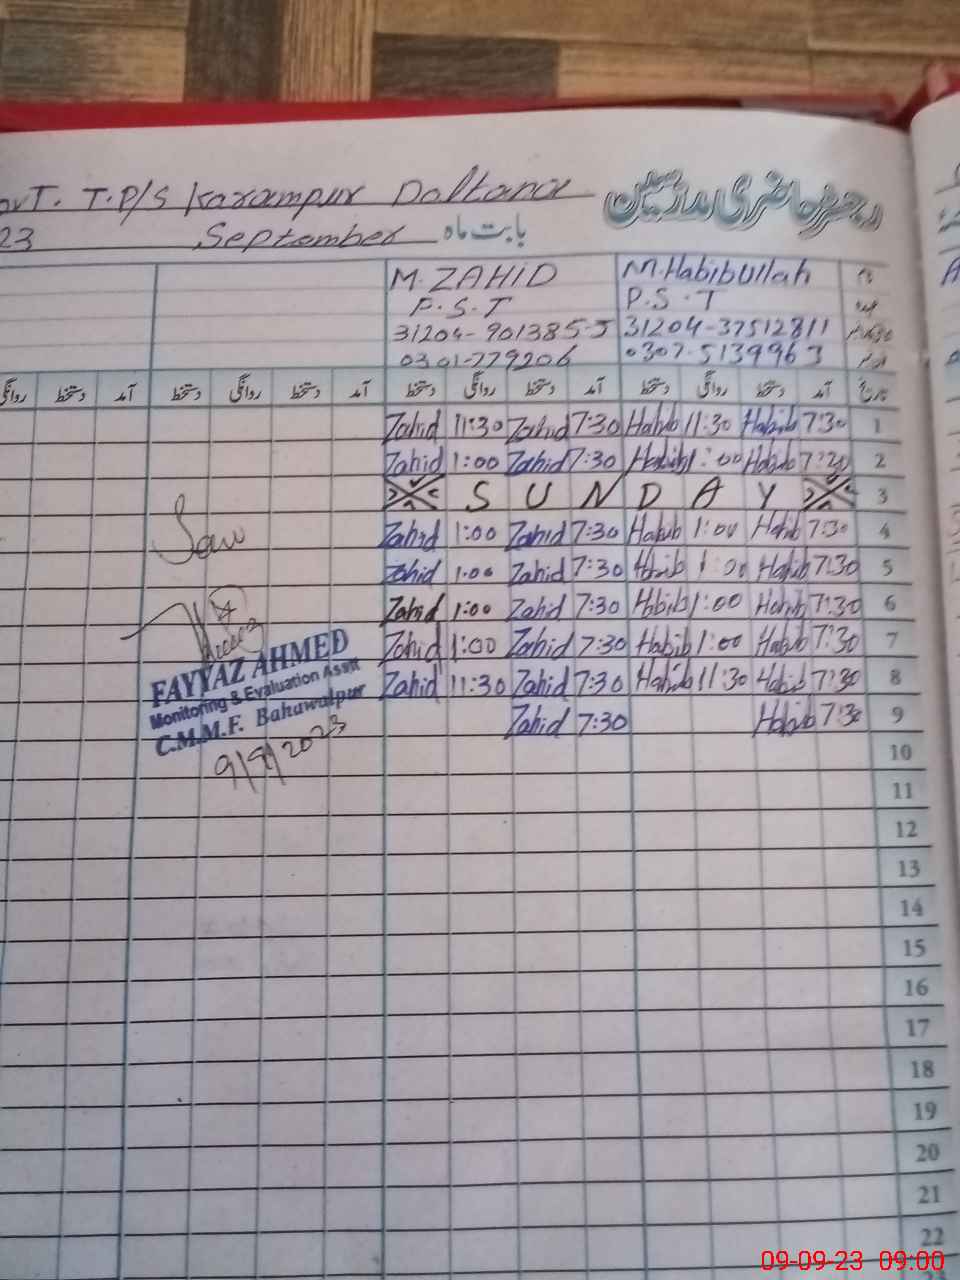 T. T.P/S Karampur Daltana رجسٹر حاضری ملازمین
23 September بابت ماہ
M. ZAHID M.Habibullah نام
P.S.T P.S.T عہدہ
31204-901385-5 31204-37512811
0301-779206 0307-5139963
روانگی دستخط آمد دستخط روانگی دستخط آمد دستخط روانگی دستخط آمد دستخط روانگی دستخط آمد تاریخ
Zahid 11:30 Zahid 7:30 Habib 11:30 Habib 7:30 1
Zahid 1:00 Zahid 7:30 Habib 1:00 Habib 7:30 2
S U N D A Y 3
Zahid 1:00 Zahid 7:30 Habib 1:00 Habib 7:30 4
Zahid 1:00 Zahid 7:30 Habib 1:00 Habib 7:30 5
Zahid 1:00 Zahid 7:30 Habib 1:00 Habib 7:30 6
Zahid 1:00 Zahid 7:30 Habib 1:00 Habib 7:30 7
Zahid 11:30 Zahid 7:30 Habib 11:30 Habib 7:30 8
Zahid 7:30 Habib 7:30 9
FAYYAZ AHMED
Monitoring & Evaluation Asstt
C.M.M.F. Bahawalpur
9/9/2023
10
11
12
13
14
15
16
17
18
19
20
21
22
23
09-09-23 09:00